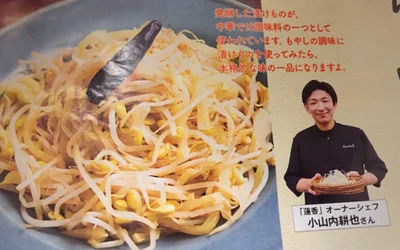 発酵した漬けものが、
中華では調味料の一つとして
使われています。もやしの調味に
漬けものを使ってみたら、
本格的な味の一品になりますよ。
「蓮香」オーナーシェフ
小山内耕也さん